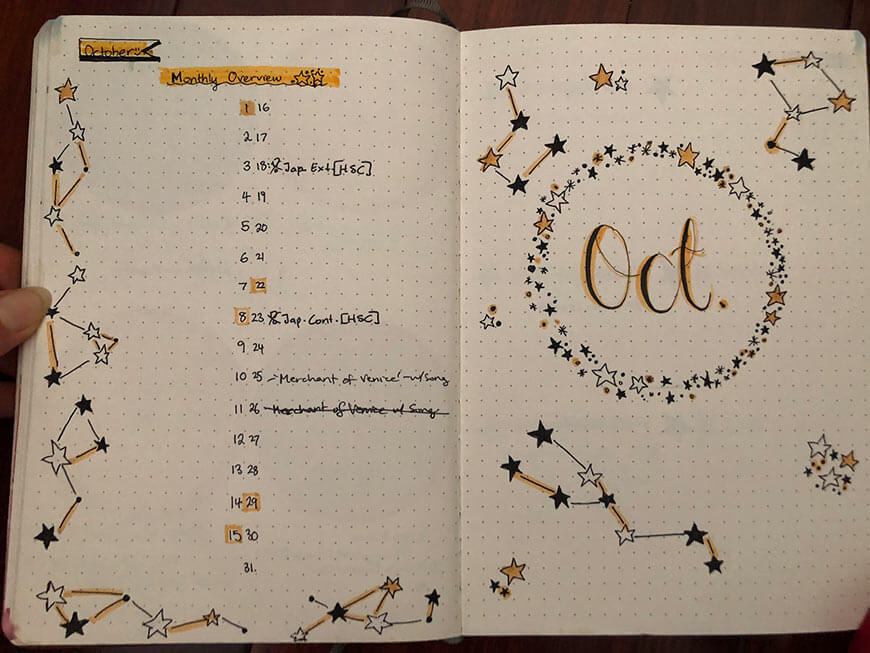 October
Monthly Overview
1 16
2 17
3 18 Jap Ext [HSC]
4 19
5 20
6 21
7 22
8 23 Jap. Cont. [HSC]
9 24
10 25 - 'Merchant of Venice' - w/ Song
11 26 - Merchant of Venice w/ Song
12 27
13 28
14 29
15 30
31.
Oct.